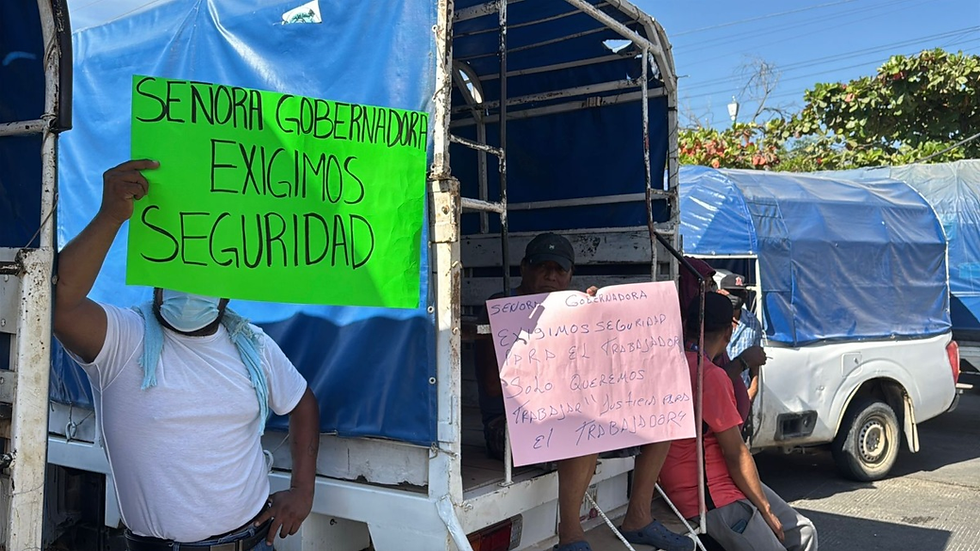 SEÑORA GOBERNADORA
EXIGIMOS
SEGURIDAD
SEÑORA GOBERNADORA
EXIGIMOS SEGURIDAD
PARA EL TRABAJADOR
SOLO QUEREMOS
TRABAJAR!! JUSTICIA PARA
EL TRABAJADOR